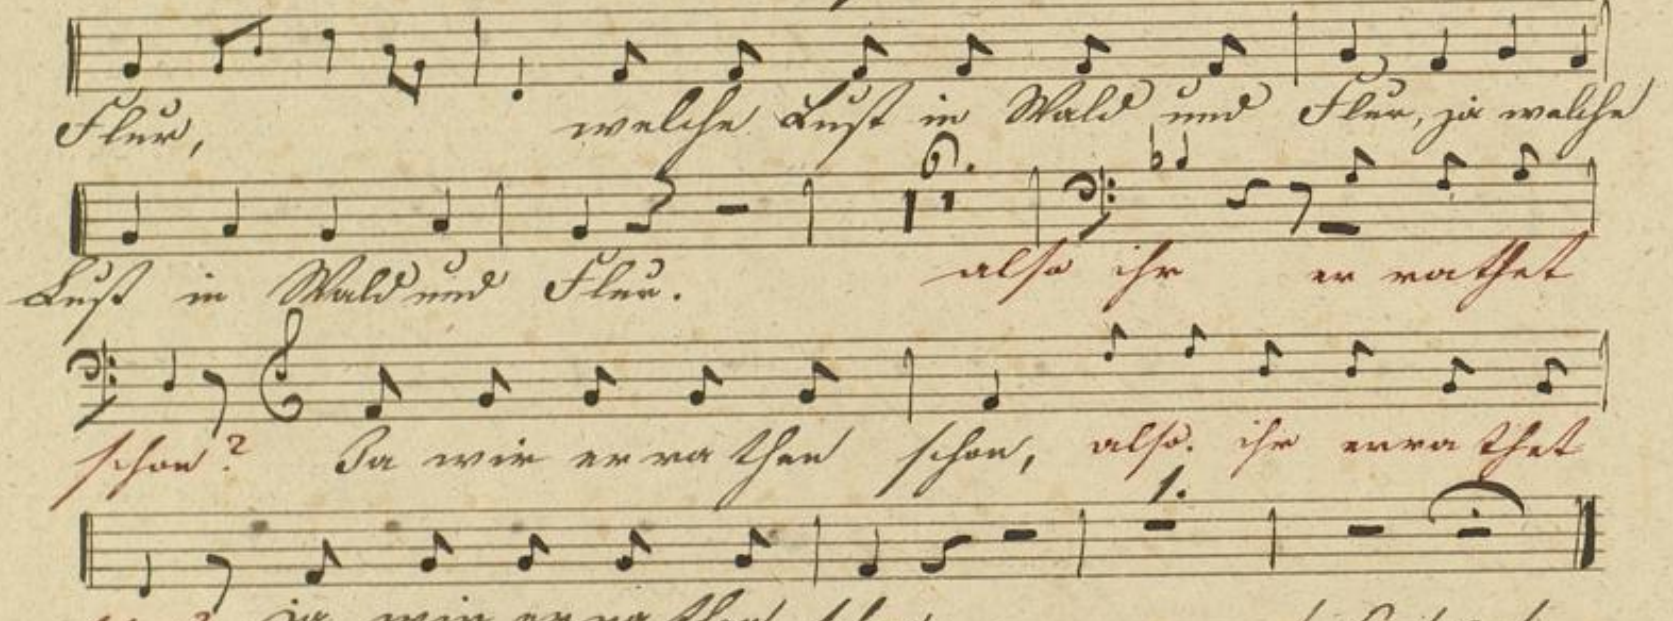 Flur, welche Lust in Wald und Flur, ja welche
6.
Lust in Wald und Flur. also ihr er rathet
schon? Ja wir er ra then schon, also. ihr erra thet
1.
? ja wir er ra then schon